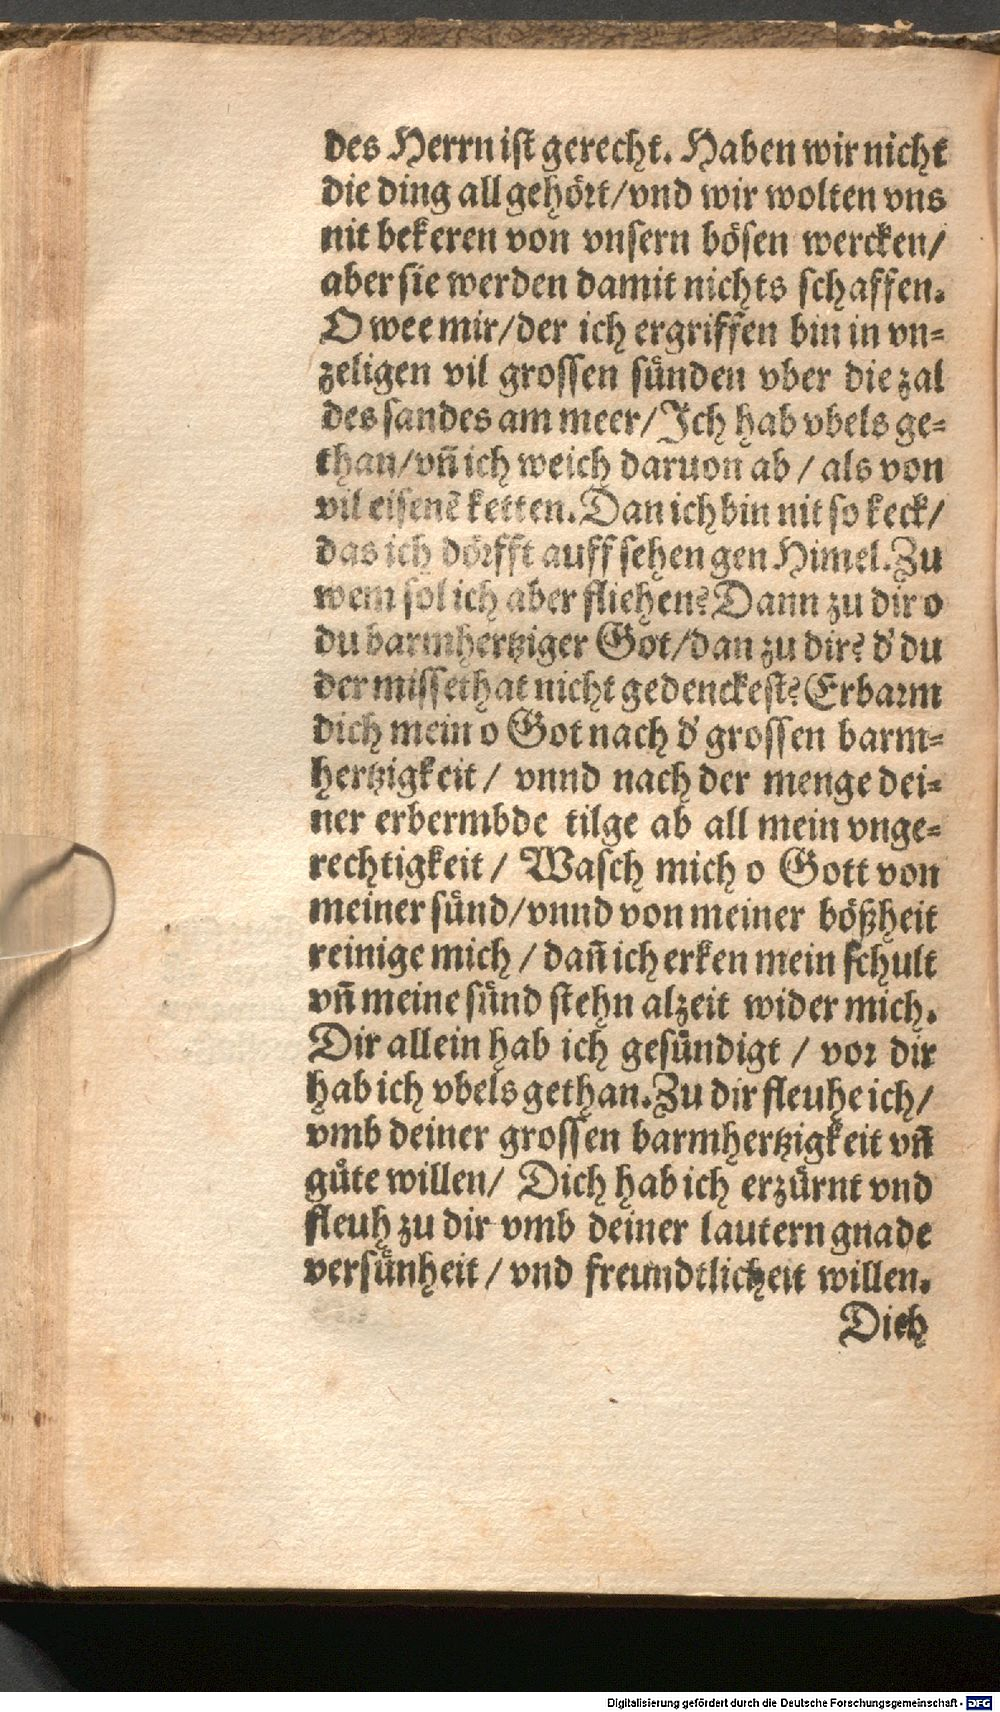 des Herrn ist gerecht. Haben wir nicht
die ding all gehört/vnd wir wolten vns
nit bekeren von vnsern bösen wercken/
aber sie werden damit nichts schaffen.
O wee mir/der ich ergriffen bin in vn=
zeligen vil grossen sünden vber die zal
des sandes am meer/Ich hab vbels ge=
than/vñ ich weich daruon ab / als von
vil eisenẽ ketten. Dan ich bin nit so keck/
das ich dörfft auff sehen gen Himel. Zu
wem sol ich aber fliehen? Dann zu dir o
du barmhertziger Got/dan zu dir? d' du
der missethat nicht gedenckest? Erbarm
dich mein o Got nach d' grossen barm=
hertzigkeit / vnnd nach der menge dei=
ner erbermbde tilge ab all mein vnge=
rechtigkeit / Wasch mich o Gott von
meiner sünd/vnnd von meiner bößheit
reinige mich / dañ ich erken mein schult
vñ meine sünd stehn alzeit wider mich.
Dir allein hab ich gesündigt / vor dir
hab ich vbels gethan. Zu dir fleuhe ich/
vmb deiner grossen barmhertzigkeit vñ
gůte willen/ Dich hab ich erzürnt vnd
fleuh zu dir vmb deiner lautern gnade
versünheit / vnd freundtlicheit willen.
Dich
Digitalisierung gefördert durch die Deutsche Forschungsgemeinschaft - DFG